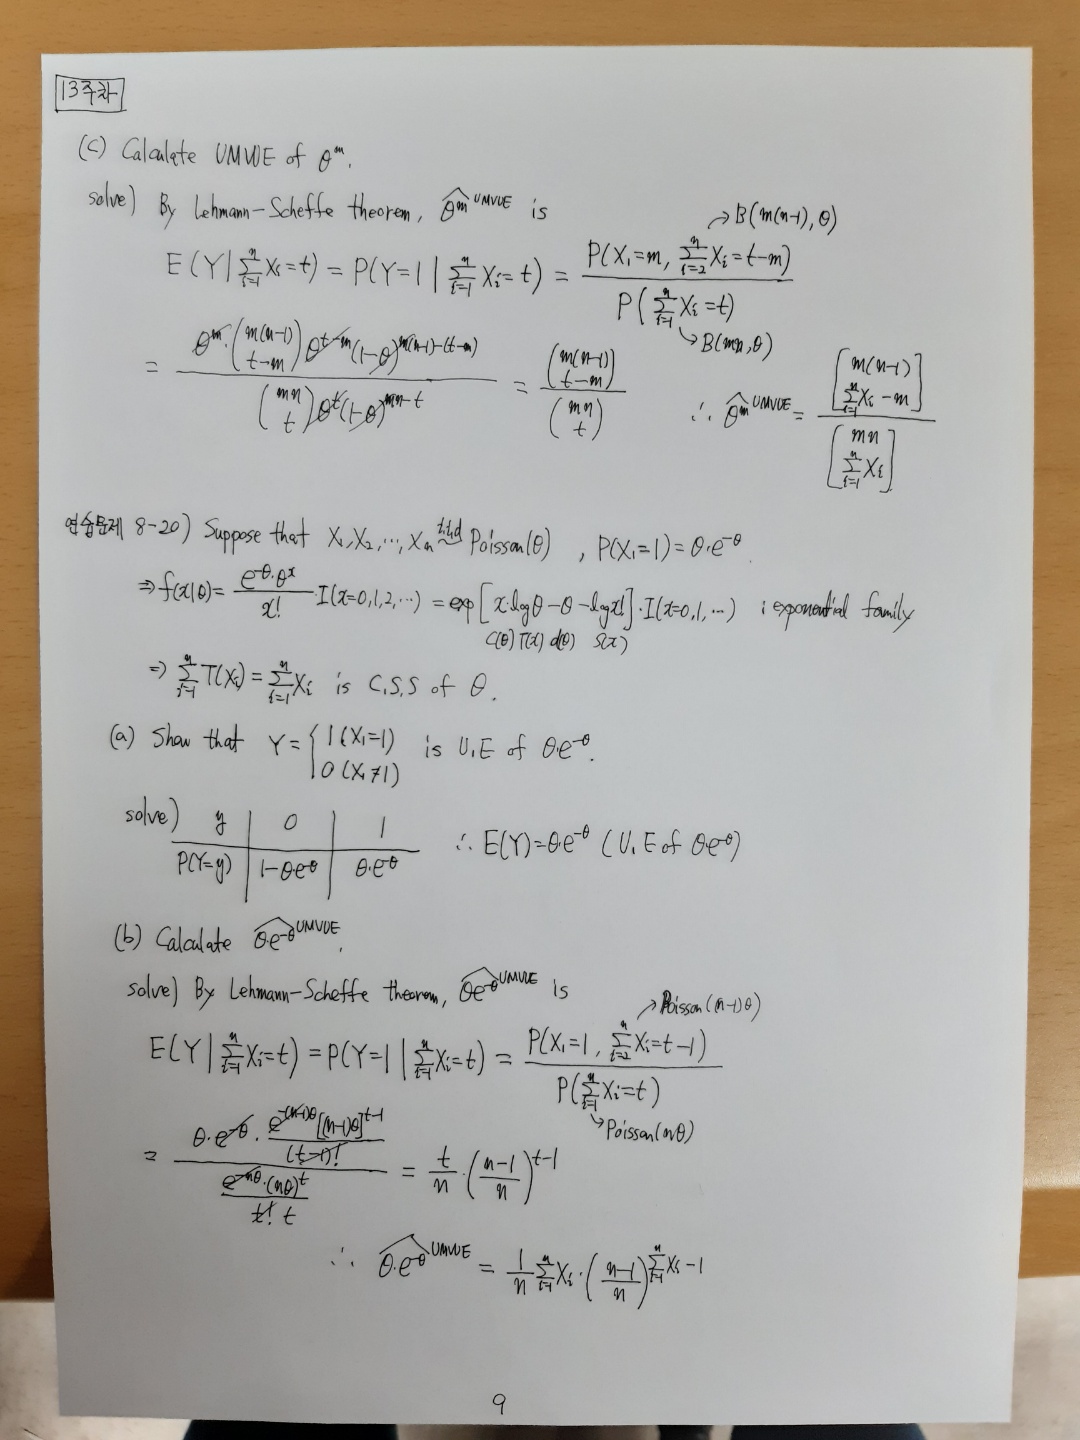 13주차
(c) Calculate UMVUE of θ^m.
solve) By Lehmann-Scheffe theorem, \widehat{θ^m}^{UMVUE} is
→B(m(n-1), θ)
E(Y|\sum_{i=1}^{n} X_i=t) = P(Y=1 | \sum_{i=1}^{n} X_i=t) = \frac{P(X_1=m, \sum_{i=2}^{n} X_i=t-m)}{P(\sum_{i=1}^{n} X_i=t)}
→B(mn, θ)
= \frac{θ^m · \binom{m(n-1)}{t-m} θ^{t-m} (1-θ)^{m(n-1)-(t-m)}}{\binom{mn}{t} θ^t (1-θ)^{mn-t}} = \frac{\binom{m(n-1)}{t-m}}{\binom{mn}{t}} ∴ \widehat{θ^m}^{UMVUE} = \frac{\begin{bmatrix} m(n-1) \\ \sum_{i=1}^{n} X_i - m \end{bmatrix}}{\begin{bmatrix} mn \\ \sum_{i=1}^{n} X_i \end{bmatrix}}
연습문제 8-20) Suppose that X_1, X_2, ⋯, X_n \overset{i.i.d}{\sim} Poisson(θ) , P(X_1=1) = θ·e^{-θ}
⇒ f(x|θ) = \frac{e^{-θ}·θ^x}{x!} · I(x=0,1,2,⋯) = exp[x·logθ-θ-logx!]·I(x=0,1,⋯) ; exponential family
C(θ) T(x) d(θ) S(x)
⇒ \sum_{i=1}^{n} T(X_i) = \sum_{i=1}^{n} X_i is C.S.S of θ.
(a) Show that Y = \begin{cases} 1 (X_1=1) \\ 0 (X_1≠1) \end{cases} is U.E of θ·e^{-θ}.
solve) y | 0 | 1
P(Y=y) | 1-θ·e^{-θ} | θ·e^{-θ} ∴ E(Y)=θ·e^{-θ} (U.E of θ·e^{-θ})
(b) Calculate \widehat{θ·e^{-θ}}^{UMVUE}.
solve) By Lehmann-Scheffe theorem, \widehat{θe^{-θ}}^{UMVUE} is
→Poisson((n-1)θ)
E(Y|\sum_{i=1}^{n} X_i=t) = P(Y=1 | \sum_{i=1}^{n} X_i=t) = \frac{P(X_1=1, \sum_{i=2}^{n} X_i=t-1)}{P(\sum_{i=1}^{n} X_i=t)}
→Poisson(nθ)
= \frac{θ·e^{-θ} · \frac{e^{-(n-1)θ} [(n-1)θ]^{t-1}}{(t-1)!}}{\frac{e^{-nθ}·(nθ)^t}{t! t}} = \frac{t}{n} · (\frac{n-1}{n})^{t-1}
∴ \widehat{θ·e^{-θ}}^{UMVUE} = \frac{1}{n} \sum_{i=1}^{n} X_i · (\frac{n-1}{n})^{\sum_{i=1}^{n} X_i - 1}
9